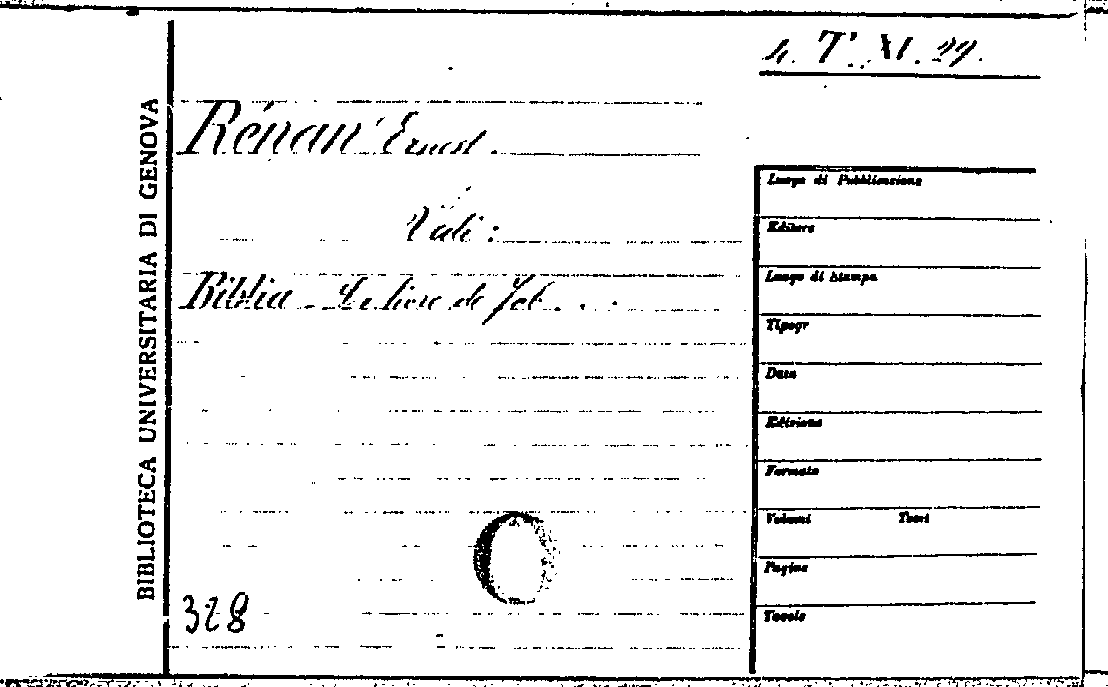 4. T. XI. 29.
BIBLIOTECA UNIVERSITARIA DI GENOVA
Rénan Ernest.
Vedi:
Biblia - Le livre de Job...
328
Luogo di Pubblicazione
Editore
Luogo di Stampa
Tipogr
Data
Edizione
Formato
Volumi Tomi
Pagine
Tavole